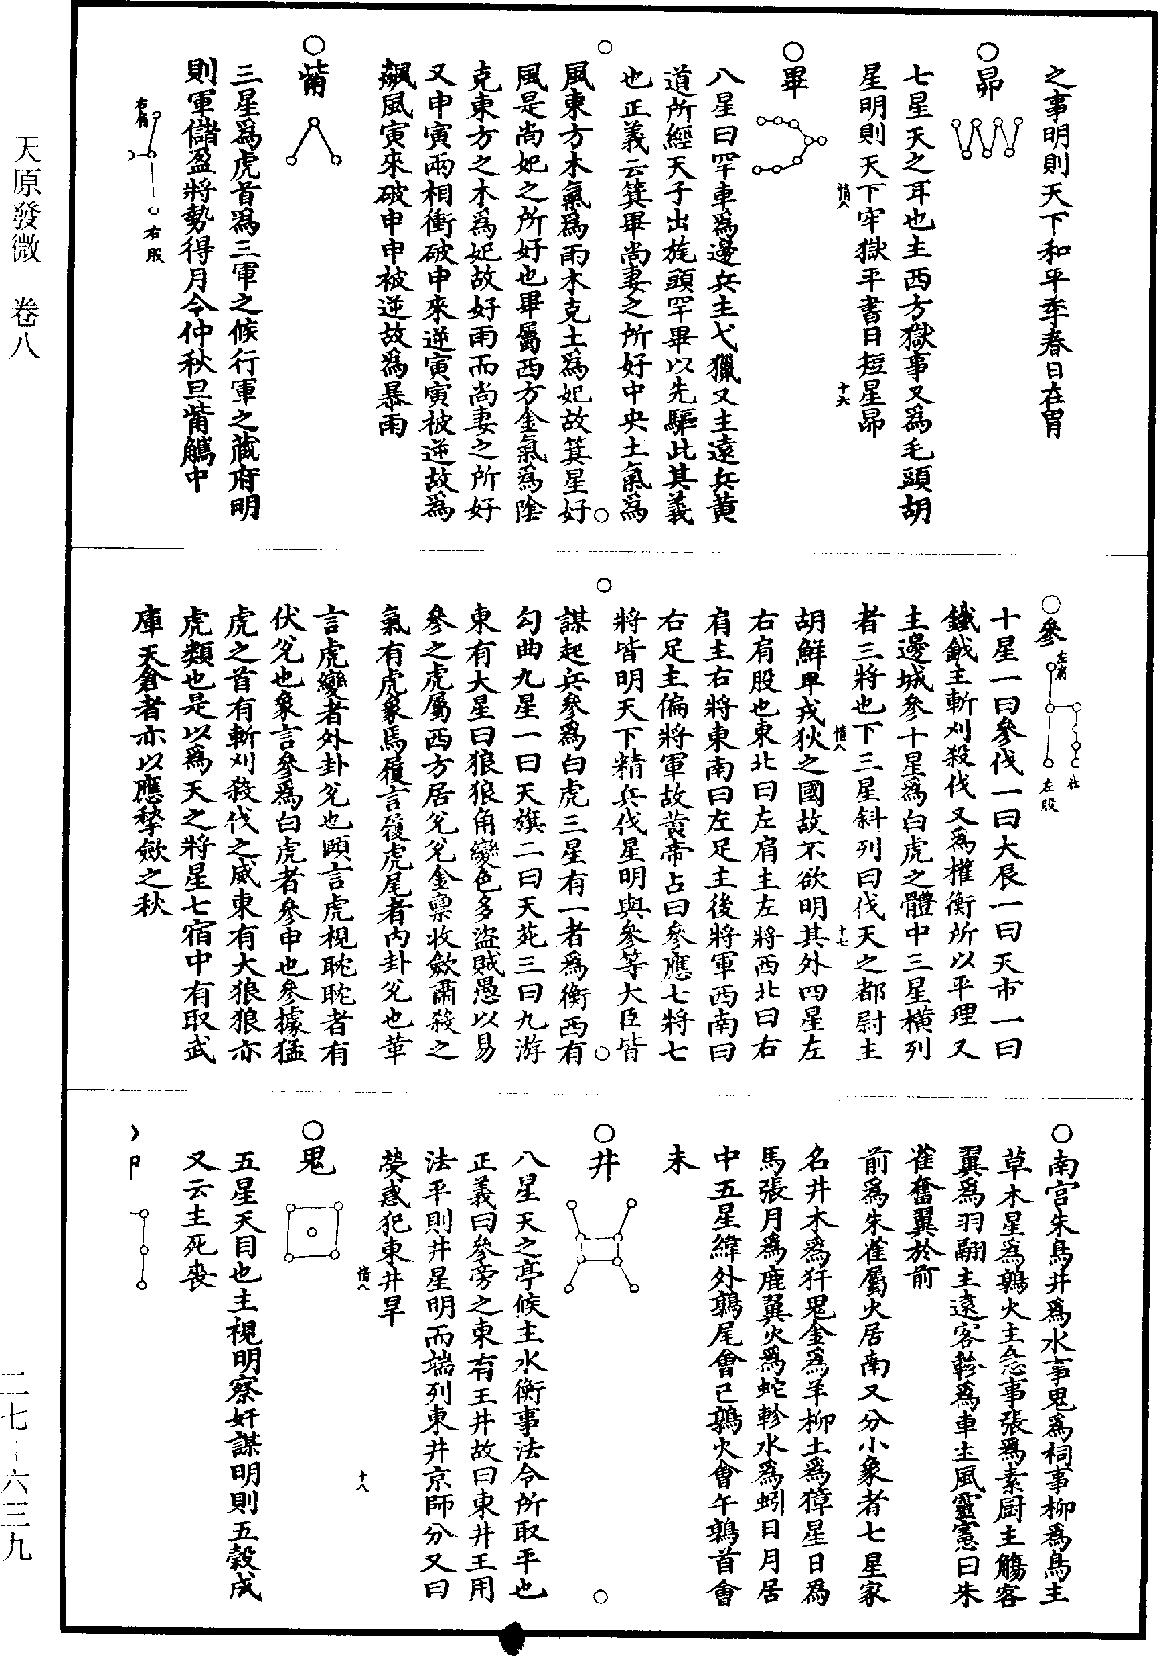 天原發微 卷八
之事明則天下和平季春日在胃
○昴
七星天之耳也主西方獄事又爲毛頭胡
星明則天下牢獄平書日短星昴
情八
十六
○畢
八星曰罕車爲邊兵主弋獵又主遠兵黄
道所經天子出旄頭罕畢以先驅此其義
也正義云箕畢尚妻之所好中央土氣爲
風東方木氣爲雨木克土爲妃故箕星好
風是尚妃之所好也畢屬西方金氣爲陰
克東方之木爲妃故好雨而尚妻之所好
又申寅兩相衝破申來逆寅寅被逆故爲
飆風寅來破申申被逆故爲暴雨
○觜
三星爲虎首爲三軍之候行軍之藏府明
則軍儲盈將勢得月令仲秋旦觜觿中
右肩
右股
○參
左肩
左股
十星一曰參伐一曰大辰一曰天市一曰
鐵鉞主斬刈殺伐又爲權衡所以平理又
主邊城參十星爲白虎之體中三星橫列
者三將也下三星斜列曰伐天之都尉主
胡鮮卑戎狄之國故不欲明其外四星左
情八
十七
右肩股也東北曰左肩主左將西北曰右
肩主右將東南曰左足主後將軍西南曰
右足主偏將軍故黄帝占曰參應七將七
將皆明天下精兵伐星明與參等大臣皆
謀起兵參爲白虎三星有一者爲衡西有
勾曲九星一曰天旗二曰天苑三曰九游
東有大星曰狼狼角變色多盜賊愚以易
參之虎屬西方居兌兌金稟收斂肅殺之
氣有虎象焉履言履虎尾者内卦兌也革
言虎變者外卦兌也頤言虎視耽耽者有
伏兌也象言參爲白虎者參申也參據猛
虎之首有斬刈殺伐之威東有大狼狼亦
虎類也是以爲天之將星七宿中有取武
庫天倉者亦以應揫斂之秋
○南宫朱鳥井爲水事鬼爲祠事柳爲鳥主
草木星爲鶉火主急事張爲素厨主觴客
翼爲羽翮主遠客軫爲車主風靈憲曰朱
雀奮翼於前
前爲朱雀屬火居南又分小象者七星家
名井木爲犴鬼金爲羊柳土爲獐星日爲
馬張月爲鹿翼火爲蛇軫水爲蚓日月居
中五星緯外鶉尾會巳鶉火會午鶉首會
未
○井
八星天之亭候主水衡事法令所取平也
正義曰參旁之東有玉井故曰東井王用
法平則井星明而端列東井京師分又曰
熒惑犯東井旱
情八
十八
○鬼
五星天目也主視明察奸謀明則五穀成
又云主死喪
二七-六三九